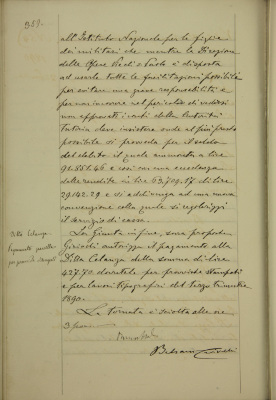 369.
all'Istituto Nazionale per le figlie
dei militari che mentre la Direzione
delle Opere Pie di S. Paolo è disposta
ad usarle tutte le facilitazioni possibili
per evitare una grave responsabilità e
per non incorrere nel pericolo di vedersi
non approvati i conti dalla Autorità
tutoria deve insistere onde al più presto
possibile si provveda per il saldo
del debito il quale ammonta a lire
91.851.46 e così con una eccedenza
dalle rendite in lire 63,709.17 di lire
29.142.29 e si addivenga ad una nuova
convenzione colla quale si regolarizzi
il servizio di cassa.
Ditta Celanza
Pagamento parcella
per provvista stampati
La Giunta infine, sulla proposta
autorizza il pagamento alla
Ditta Celanza della somma di lire
427.70 dovutale per provviste stampati
e per lavori tipografici del terzo trimestre
1890.
La tornata è sciolta alle ore
3